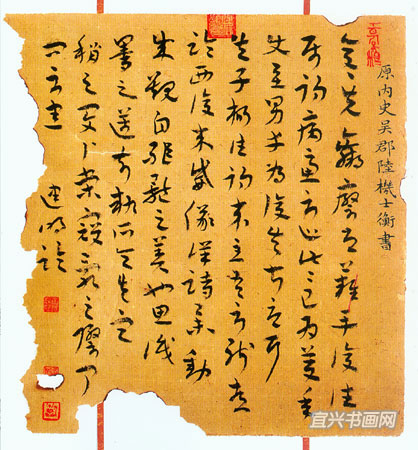 原内史吳郡陸機士衡書
彦先羸瘵恐難平復往
屬初病慮不止此此已為慶承
使唯男幸為復失前憂耳
吳子楊往初來主吾不能盡
臨西復來威儀詳跱舉動
成觀自軀體之美也思識
量之邁前執所恒有宜
稱之夏伯榮寇亂之際聞
問不悉
宜兴书画网